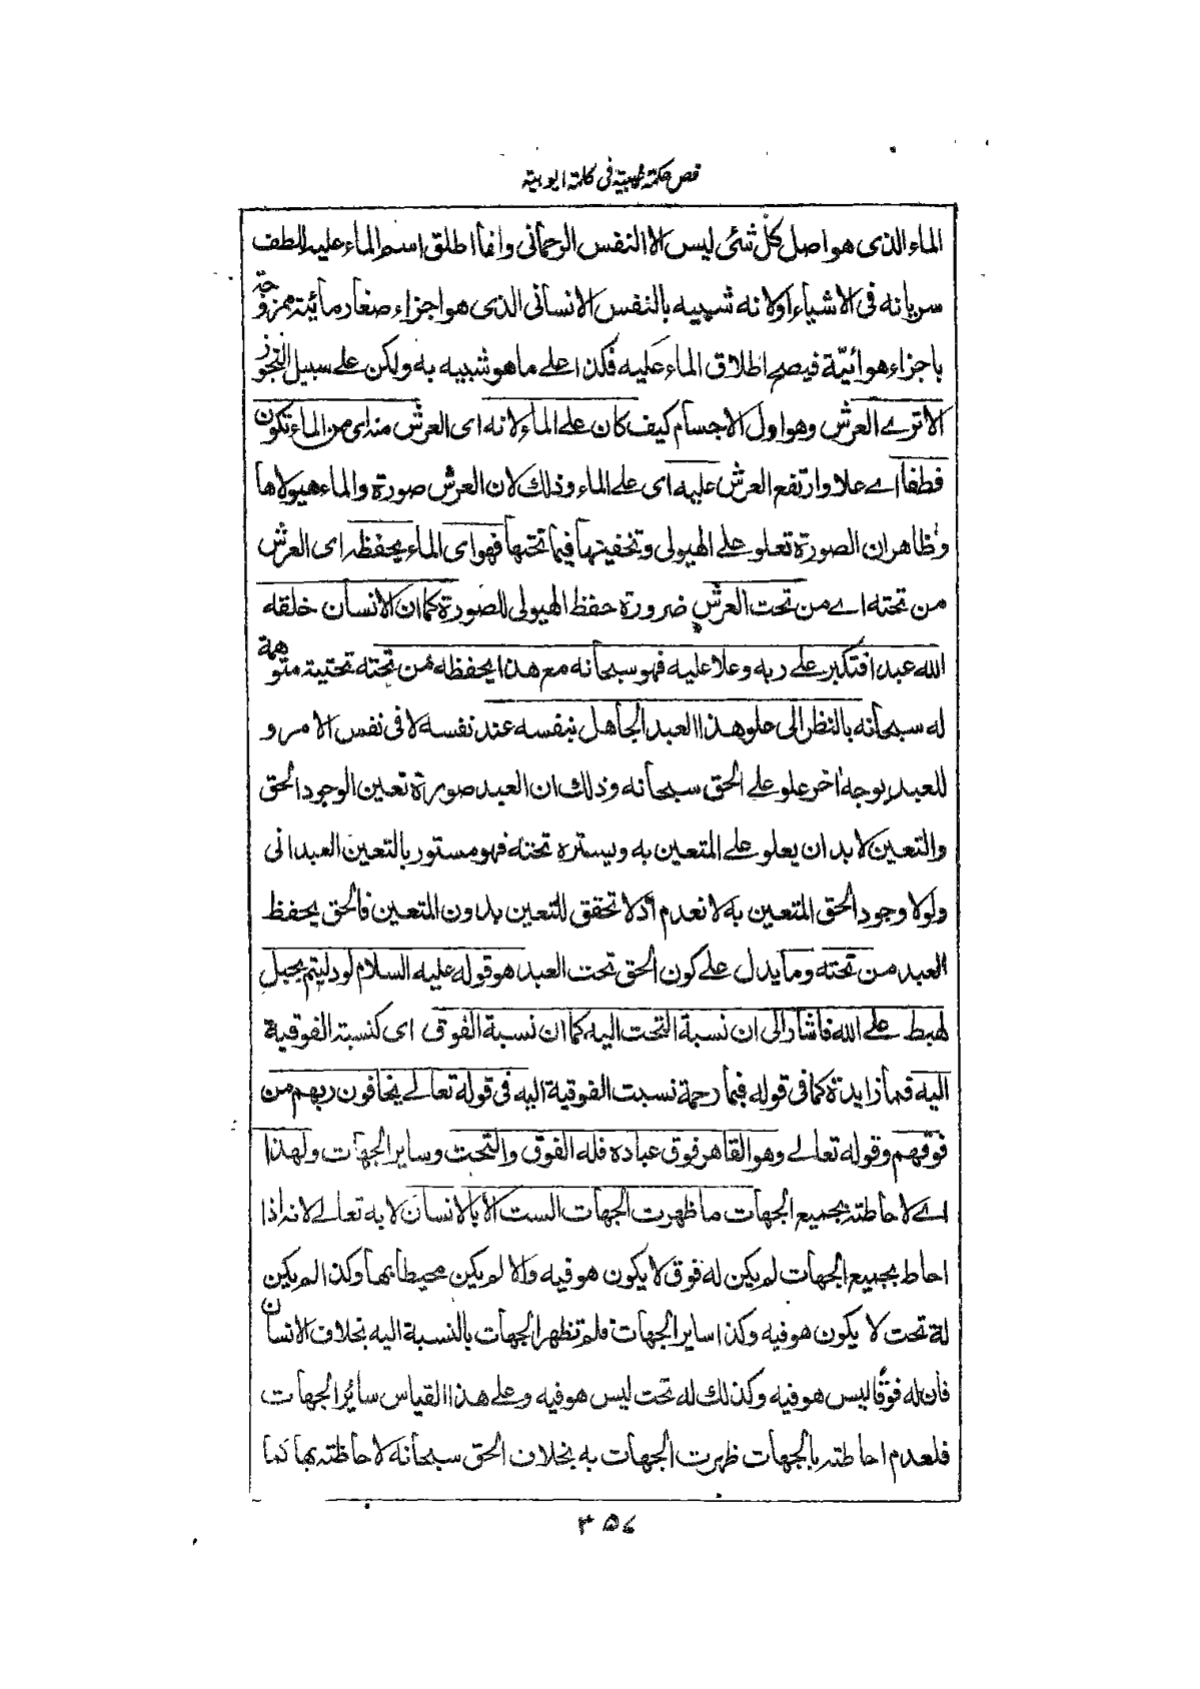 فص حكمة غيبية فى كلمة ايوبية
الماء الذى هو اصل كل شئ ليس الا النفس الرحمانى وانما اطلق اسم الماء عليه للطف
سريانه فى الاشياء اولانه شبيه بالنفس الانسانى الذى هو اجزاء صغار مائية ممزوجة
باجزاء هوائيّة فيصح اطلاق الماء عليه فكذا على ما هو شبيه به ولكن على سبيل التجوز
الا ترے العرش وهو اول الاجسام كيف كان على الماء لانه اى العرش منه اى من الماء تكون
فطفا اے علا وارتفع العرش عليه اى على الماء وذلك لان العرش صورة والماء هيولاها
وظاهر ان الصورة تعلو على الهيولى وتخفيتها فيما تحتها فهو اى الماء يحفظه اى العرش
من تحته اے من تحت العرش ضرورة حفظ الهيولى للصورة كما ان الانسان خلقه
الله عبدا فتكبر على ربه وعلا عليه فهو سبحانه مع هذا يحفظه من تحته تحتية متوهمة
له سبحانه بالنظر الى علو هذا العبد الجاهل بنفسه عند نفسه لا فى نفس الامر و
للعبد بوجه اخر علو على الحق سبحانه وذلك ان العبد صورة تعين الوجود الحق
والتعين لا بد ان يعلو على المتعين به ويستره تحته فهو مستور بالتعين العبدانى
ولولا وجود الحق المتعين به لانعدم اذ لا تحقق للتعين بدون المتعين فالحق يحفظ
العبد من تحته وما يدل على كون الحق تحت العبد هو قوله عليه السلام لو دليتم بحبل
لهبط على الله فاشار الى ان نسبة التحت اليه كما ان نسبة الفوق اى كنسبة الفوقية
اليه فما زايدة كما فى قوله فبما رحمة نسبت الفوقية اليه فى قوله تعالے يخافون ربهم من
فوقهم وقوله تعالے وهو القاهر فوق عباده فله الفوق والتحت وساير الجهات ولهذا
اے لاحاطته بجميع الجهات ما ظهرت الجهات الست الا بالانسان لا به تعالے لانه اذا
احاط بجميع الجهات لم يكن له فوق لا يكون هو فيه والا لم يكن محيطا بها وكذا لم يكن
له تحت لا يكون هو فيه وكذا ساير الجهات فلم تظهر الجهات بالنسبة اليه بخلاف الانسان
فان له فوقا ليس هو فيه وكذلك له تحت ليس هو فيه وعلى هذا القياس سائر الجهات
فلعدم احاطته بالجهات ظهرت الجهات به بخلاف الحق سبحانه لاحاظته بها كما